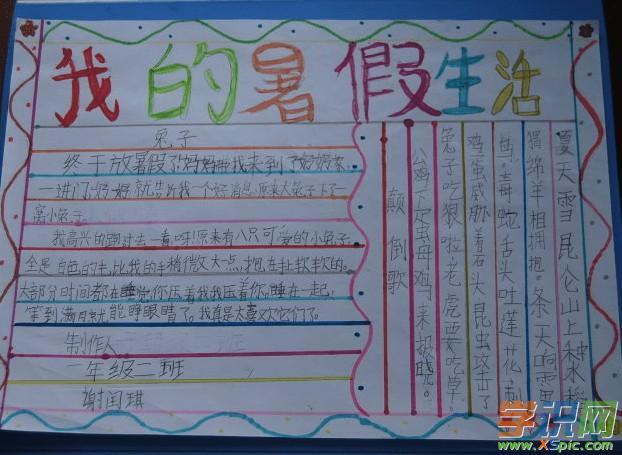 我的暑假生活
兔子
终于放暑假了妈妈带我来到了奶奶家。
一进门奶奶就告诉我一个好消息,原来大兔子下了一
窝小兔子。
我高兴的跑过去一看,呀!原来有八只可爱的小兔子
全是白色的毛,比我的手稍微大点,抱在手软软的。
大部分时间都在睡觉,你压着我我压着你,睡在一起,
等到满月就能睁眼睛了。我真是太喜欢它们了。
制作人
一年级二班
谢闰琪
夏天雪昆仑山上种水稻
绵羊相拥抱。条天响雷
毒蛇舌头吐莲花
鸡蛋威胁着石头昆虫攻击了
兔子吃狼啦老虎要吃草。
公鸡下昆虫母鸡来报晓。
颠倒歌
学识网
www.XSpic.com